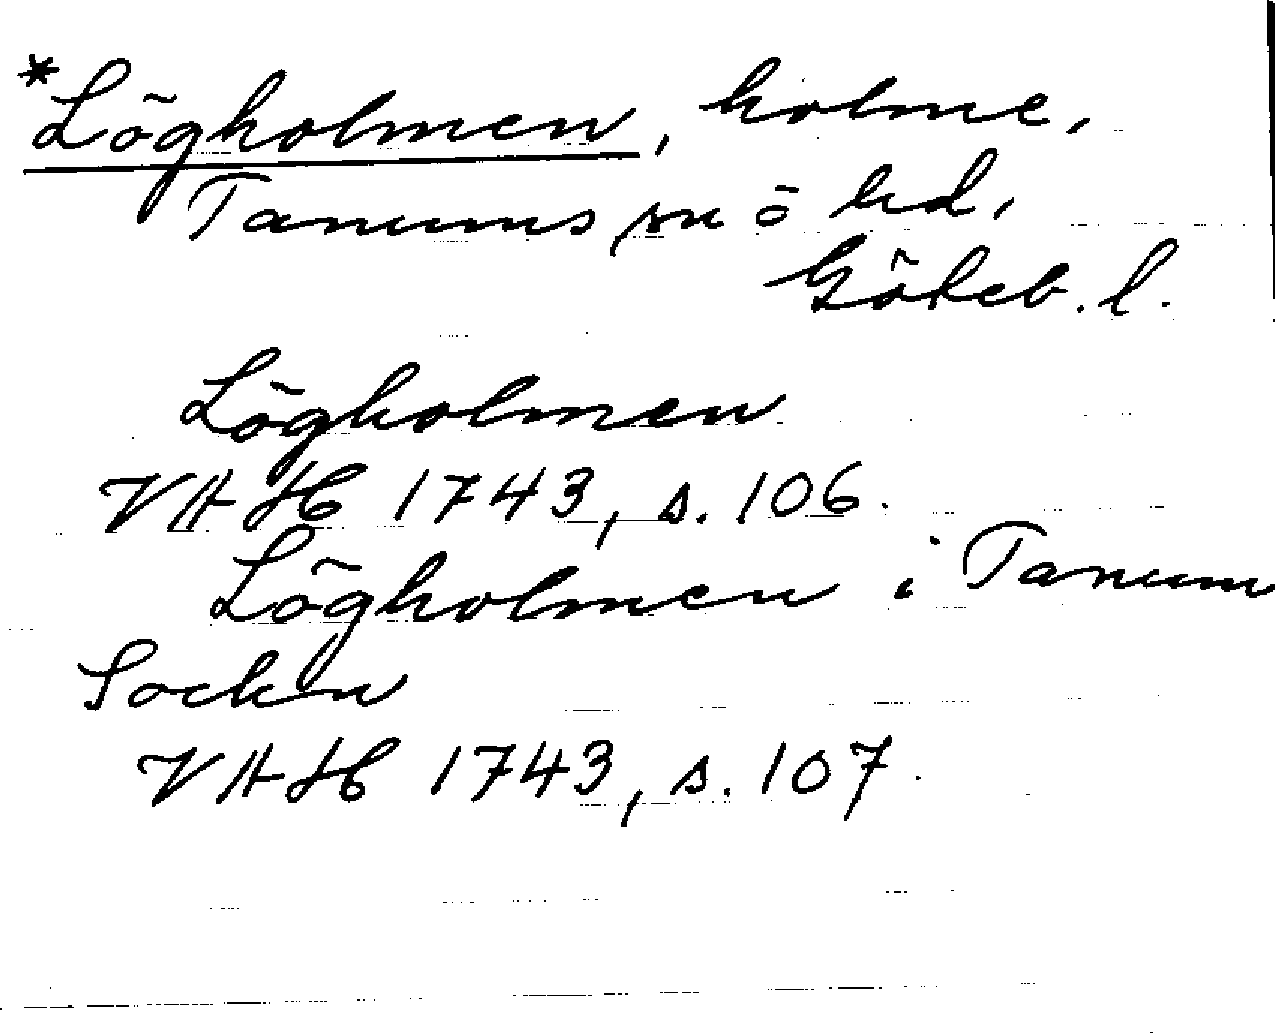 *Lögholmen, holme,
Tanums sn o hd,
Göteb. l.
Lögholmen
VAH 1743, s. 106.
Lögholmen i Tanum
Sockn
VAH 1743, s. 107.